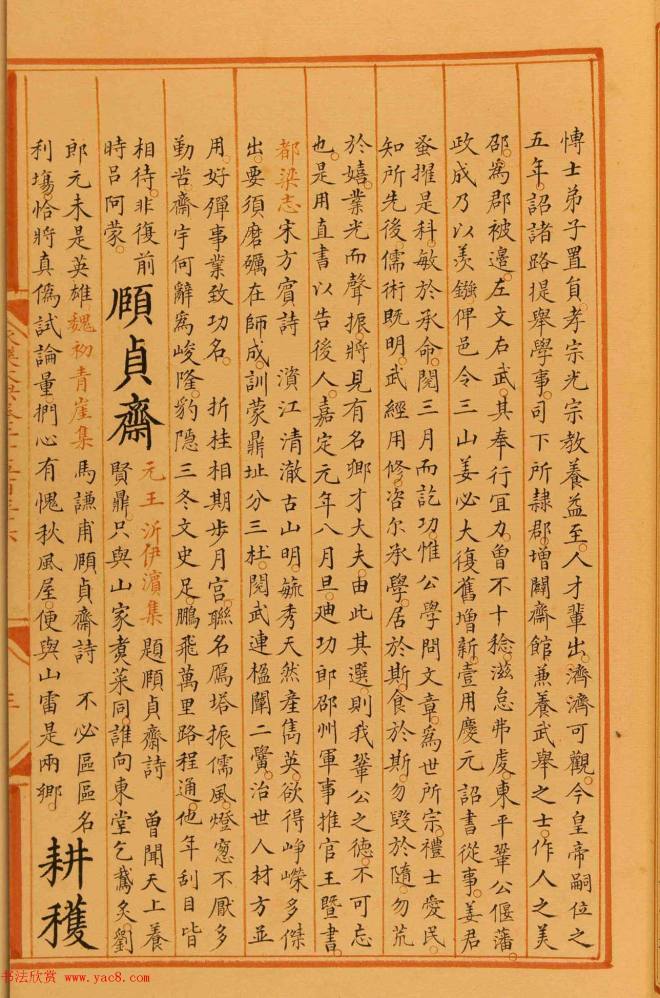 慱士弟子置負孝宗光宗教養益至人才輩出濟濟可觀今皇帝嗣位之
五年詔諸路提舉學事司下所隷郡增闢齋館兼養武舉之士作人之美
邵為郡被邊左文右武其奉行宜力曾不十稔滋怠弗虔東平鞏公偃藩
政成乃以羨鏹俾邑令三山姜必大復舊增新壹用慶元詔書從事姜君
蚤擢是科敏於承命閱三月而訖功惟公學問文章為世所宗禮士愛民
知所先後儒術既明武經用修咨尔承學居於斯食於斯勿毀於隨勿荒
於嬉業光而聲振將見有名卿才大夫由此其選則我鞏公之德不可忘
也是用直書以告後人嘉定元年八月旦廸功郎邵州軍事推官王暨書
都梁志宋方賔詩 濱江清澈古山明毓秀天然產雋英欲得崢嶸多傑
出要須磨礪在師成訓蒙鼎址分三杜閱武連楹闡二黌治世人材方並
用好彈事業致功名 折桂相期步月宫聯名鴈塔振儒風燈窓不厭多
勤苦齋宇何辭為峻隆豹隱三冬文史足鵬飛萬里路程通他年刮目皆
相待非復前
時吕阿蒙
頤貞齋
元王沂伊濱集 題頤貞齋詩 曾聞天上養
賢鼎只與山家煑菜同誰向東堂乞鵞炙劉
郎元未是英雄魏初青崖集 馬謙甫頤貞齋詩 不必區區名
利塲恰將真僞試論量捫心有愧秋風屋便與山雷是兩鄉
耕穫
书法欣赏 www.yac8.com